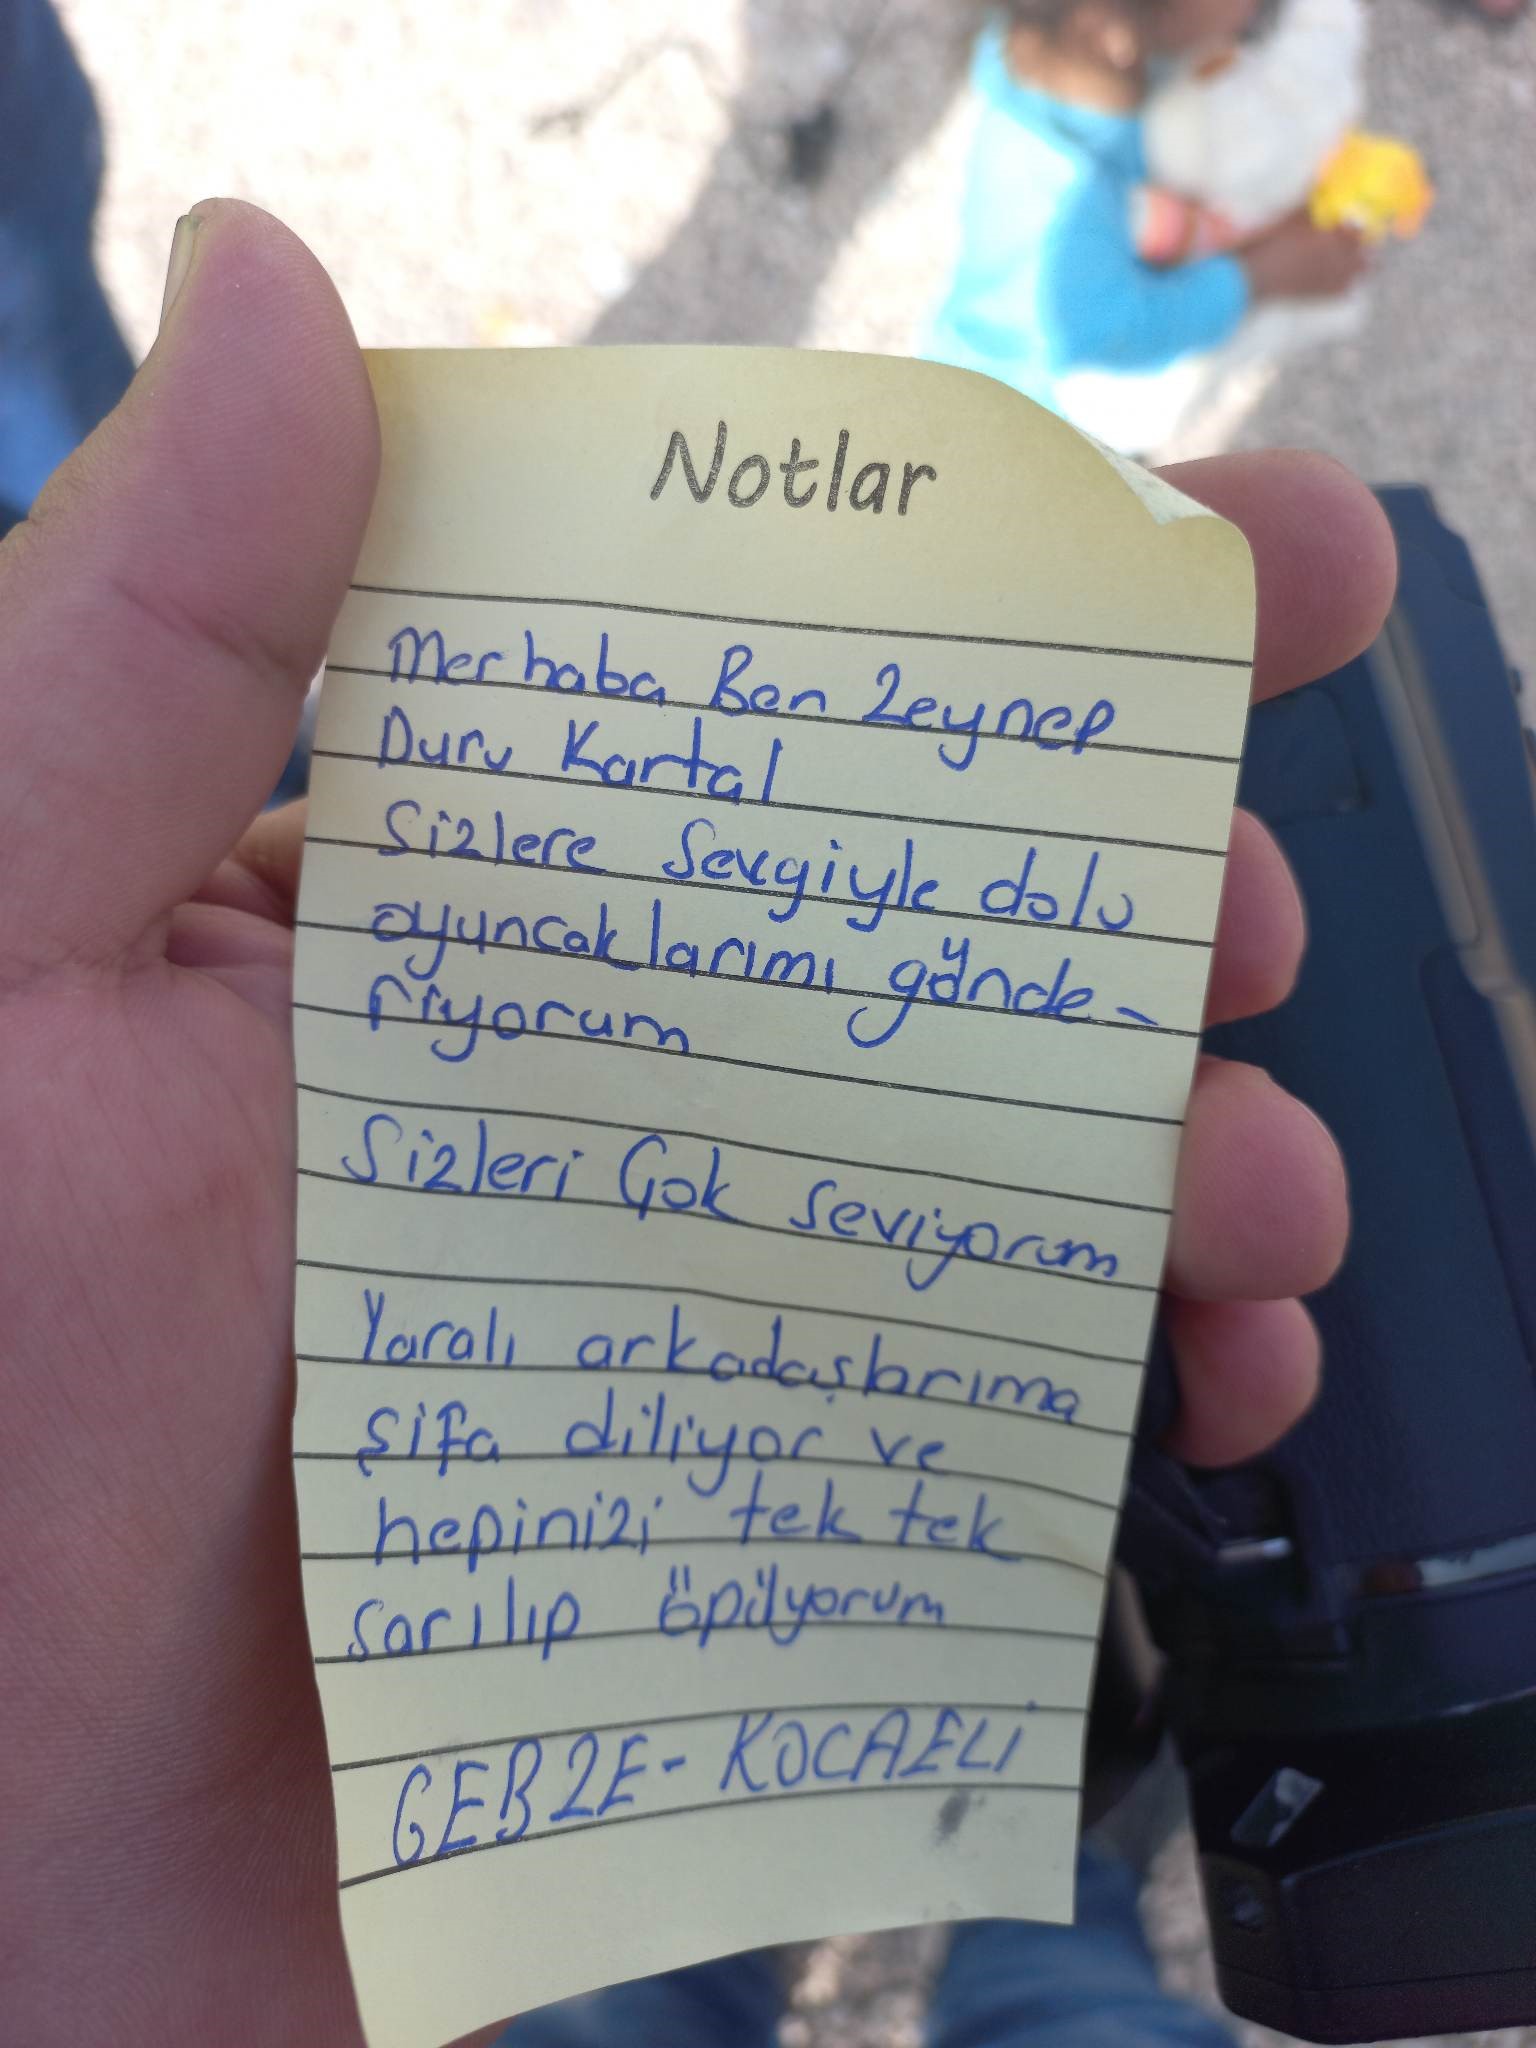 Notlar
Merhaba Ben Zeynep
Duru Kartal
Sizlere Sevgiyle dolu
oyuncaklarımı gönde-
riyorum
Sizleri Çok seviyorum
Yaralı arkadaşlarıma
şifa diliyor ve
hepinizi tek tek
sarılıp öpüyorum
GEBZE-KOCAELİ